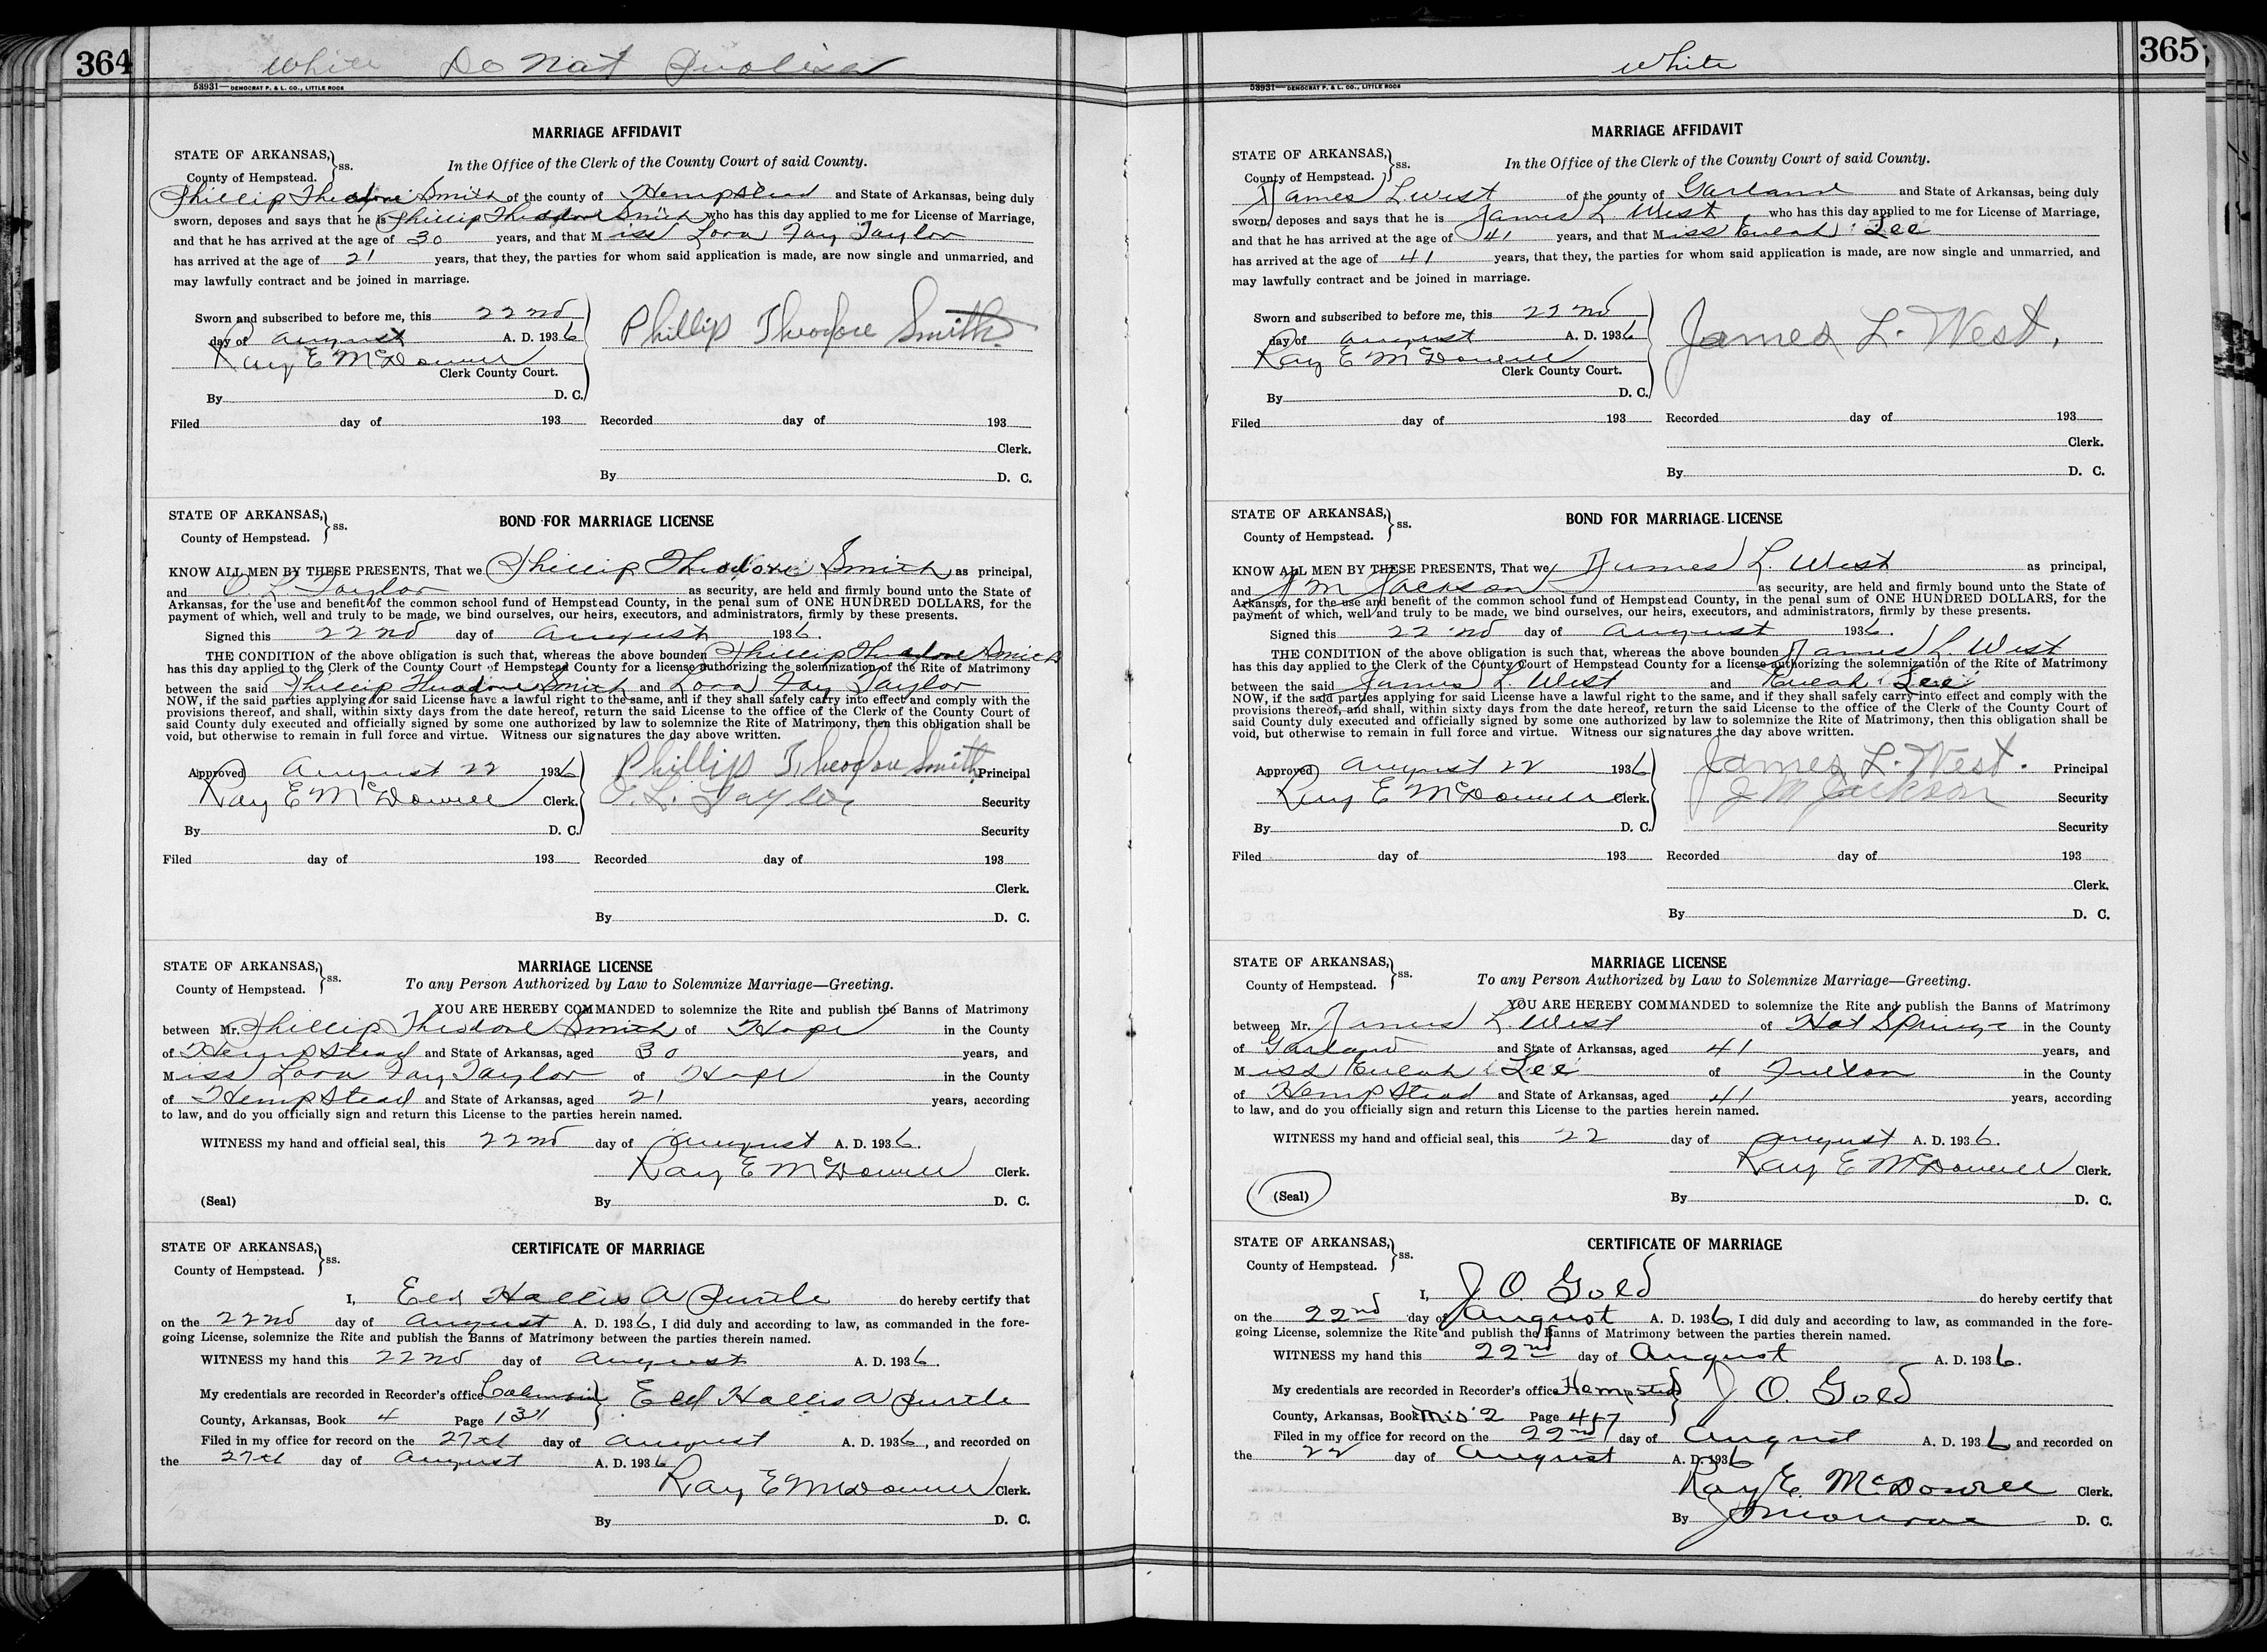 364
White Do Not Publish
53931—DEMOCRAT P. & L. CO., LITTLE ROCK
MARRIAGE AFFIDAVIT
STATE OF ARKANSAS,
County of Hempstead. } ss.
In the Office of the Clerk of the County Court of said County.
Phillip Theodore Smith of the county of Hempstead and State of Arkansas, being duly
sworn, deposes and says that he is Phillip Theodore Smith who has this day applied to me for License of Marriage,
and that he has arrived at the age of 30 years, and that Miss Lora Fay Taylor
has arrived at the age of 21 years, that they, the parties for whom said application is made, are now single and unmarried, and
may lawfully contract and be joined in marriage.
Sworn and subscribed to before me, this 22nd
day of August A. D. 1936
Phillip Theodore Smith
Ray E McDowell
Clerk County Court.
By D. C.
Filed day of 193 Recorded day of 193
Clerk.
By D. C.
STATE OF ARKANSAS,
County of Hempstead. } ss.
BOND FOR MARRIAGE LICENSE
KNOW ALL MEN BY THESE PRESENTS, That we Phillip Theodore Smith as principal,
and O L Taylor as security, are held and firmly bound unto the State of
Arkansas, for the use and benefit of the common school fund of Hempstead County, in the penal sum of ONE HUNDRED DOLLARS, for the
payment of which, well and truly to be made, we bind ourselves, our heirs, executors, and administrators, firmly by these presents.
Signed this 22nd day of August 1936.
THE CONDITION of the above obligation is such that, whereas the above bounden Phillip Theodore Smith
has this day applied to the Clerk of the County Court of Hempstead County for a license authorizing the solemnization of the Rite of Matrimony
between the said Phillip Theodore Smith and Lora Fay Taylor
NOW, if the said parties applying for said License have a lawful right to the same, and if they shall safely carry into effect and comply with the
provisions thereof, and shall, within sixty days from the date hereof, return the said License to the office of the Clerk of the County Court of
said County duly executed and officially signed by some one authorized by law to solemnize the Rite of Matrimony, then this obligation shall be
void, but otherwise to remain in full force and virtue. Witness our signatures the day above written.
Approved August 22 1936 Phillip Theodore Smith Principal
Ray E McDowell Clerk. O. L. Taylor Security
By D. C. Security
Filed day of 193 Recorded day of 193
Clerk.
By D. C.
STATE OF ARKANSAS,
County of Hempstead. } ss.
MARRIAGE LICENSE
To any Person Authorized by Law to Solemnize Marriage—Greeting.
YOU ARE HEREBY COMMANDED to solemnize the Rite and publish the Banns of Matrimony
between Mr. Phillip Theodore Smith of Hope in the County
of Hempstead and State of Arkansas, aged 30 years, and
Miss Lora Fay Taylor of Hope in the County
of Hempstead and State of Arkansas, aged 21 years, according
to law, and do you officially sign and return this License to the parties herein named.
WITNESS my hand and official seal, this 22nd day of August A. D. 1936.
Ray E McDowell Clerk.
(Seal) By D. C.
STATE OF ARKANSAS,
County of Hempstead. } ss.
CERTIFICATE OF MARRIAGE
I, Eld Hollis A Purtle do hereby certify that
on the 22nd day of August A. D. 1936, I did duly and according to law, as commanded in the fore-
going License, solemnize the Rite and publish the Banns of Matrimony between the parties therein named.
WITNESS my hand this 22nd day of August A. D. 1936.
My credentials are recorded in Recorder's office Columbia } Eld Hollis A Purtle
County, Arkansas, Book 4 Page
Filed in my office for record on the 27th day of August A. D. 1936, and recorded on
the 27th day of August A. D. 1936
Ray E McDowell Clerk.
By D. C.
365
White
53931—DEMOCRAT P. & L. CO., LITTLE ROCK
MARRIAGE AFFIDAVIT
STATE OF ARKANSAS,
County of Hempstead. } ss.
In the Office of the Clerk of the County Court of said County.
James L West of the county of Garland and State of Arkansas, being duly
sworn, deposes and says that he is James L. West who has this day applied to me for License of Marriage,
and that he has arrived at the age of 41 years, and that Miss Eulah Lee
has arrived at the age of 41 years, that they, the parties for whom said application is made, are now single and unmarried, and
may lawfully contract and be joined in marriage.
Sworn and subscribed to before me, this 22nd
day of August A. D. 1936
James L. West.
Ray E McDowell
Clerk County Court.
By D. C.
Filed day of 193 Recorded day of 193
Clerk.
By D. C.
STATE OF ARKANSAS,
County of Hempstead. } ss.
BOND FOR MARRIAGE LICENSE
KNOW ALL MEN BY THESE PRESENTS, That we James L. West as principal,
and J M Jackson as security, are held and firmly bound unto the State of
Arkansas, for the use and benefit of the common school fund of Hempstead County, in the penal sum of ONE HUNDRED DOLLARS, for the
payment of which, well and truly to be made, we bind ourselves, our heirs, executors, and administrators, firmly by these presents.
Signed this 22nd day of August 1936.
THE CONDITION of the above obligation is such that, whereas the above bounden James L. West
has this day applied to the Clerk of the County Court of Hempstead County for a license authorizing the solemnization of the Rite of Matrimony
between the said James L West and Eulah Lee
NOW, if the said parties applying for said License have a lawful right to the same, and if they shall safely carry into effect and comply with the
provisions thereof, and shall, within sixty days from the date hereof, return the said License to the office of the Clerk of the County Court of
said County duly executed and officially signed by some one authorized by law to solemnize the Rite of Matrimony, then this obligation shall be
void, but otherwise to remain in full force and virtue. Witness our signatures the day above written.
Approved August 22 1936 James L. West. Principal
Ray E McDowell Clerk. J M Jackson Security
By D. C. Security
Filed day of 193 Recorded day of 193
Clerk.
By D. C.
STATE OF ARKANSAS,
County of Hempstead. } ss.
MARRIAGE LICENSE
To any Person Authorized by Law to Solemnize Marriage—Greeting.
YOU ARE HEREBY COMMANDED to solemnize the Rite and publish the Banns of Matrimony
between Mr. James L. West of Hot Springs in the County
of Garland and State of Arkansas, aged 41 years, and
Miss Eulah Lee of Fulton in the County
of Hempstead and State of Arkansas, aged 41 years, according
to law, and do you officially sign and return this License to the parties herein named.
WITNESS my hand and official seal, this 22 day of August A. D. 1936.
Ray E McDowell Clerk.
(Seal) By D. C.
STATE OF ARKANSAS,
County of Hempstead. } ss.
CERTIFICATE OF MARRIAGE
I, J. O. Gold do hereby certify that
on the 22nd day of August A. D. 1936, I did duly and according to law, as commanded in the fore-
going License, solemnize the Rite and publish the Banns of Matrimony between the parties therein named.
WITNESS my hand this 22nd day of August A. D. 1936.
My credentials are recorded in Recorder's office Hempstead } J. O. Gold
County, Arkansas, Book Mis 2 Page 447
Filed in my office for record on the 22nd day of August A. D. 1936 and recorded on
the 22 day of August A. D. 1936
Ray E. McDowell Clerk.
By D. C.